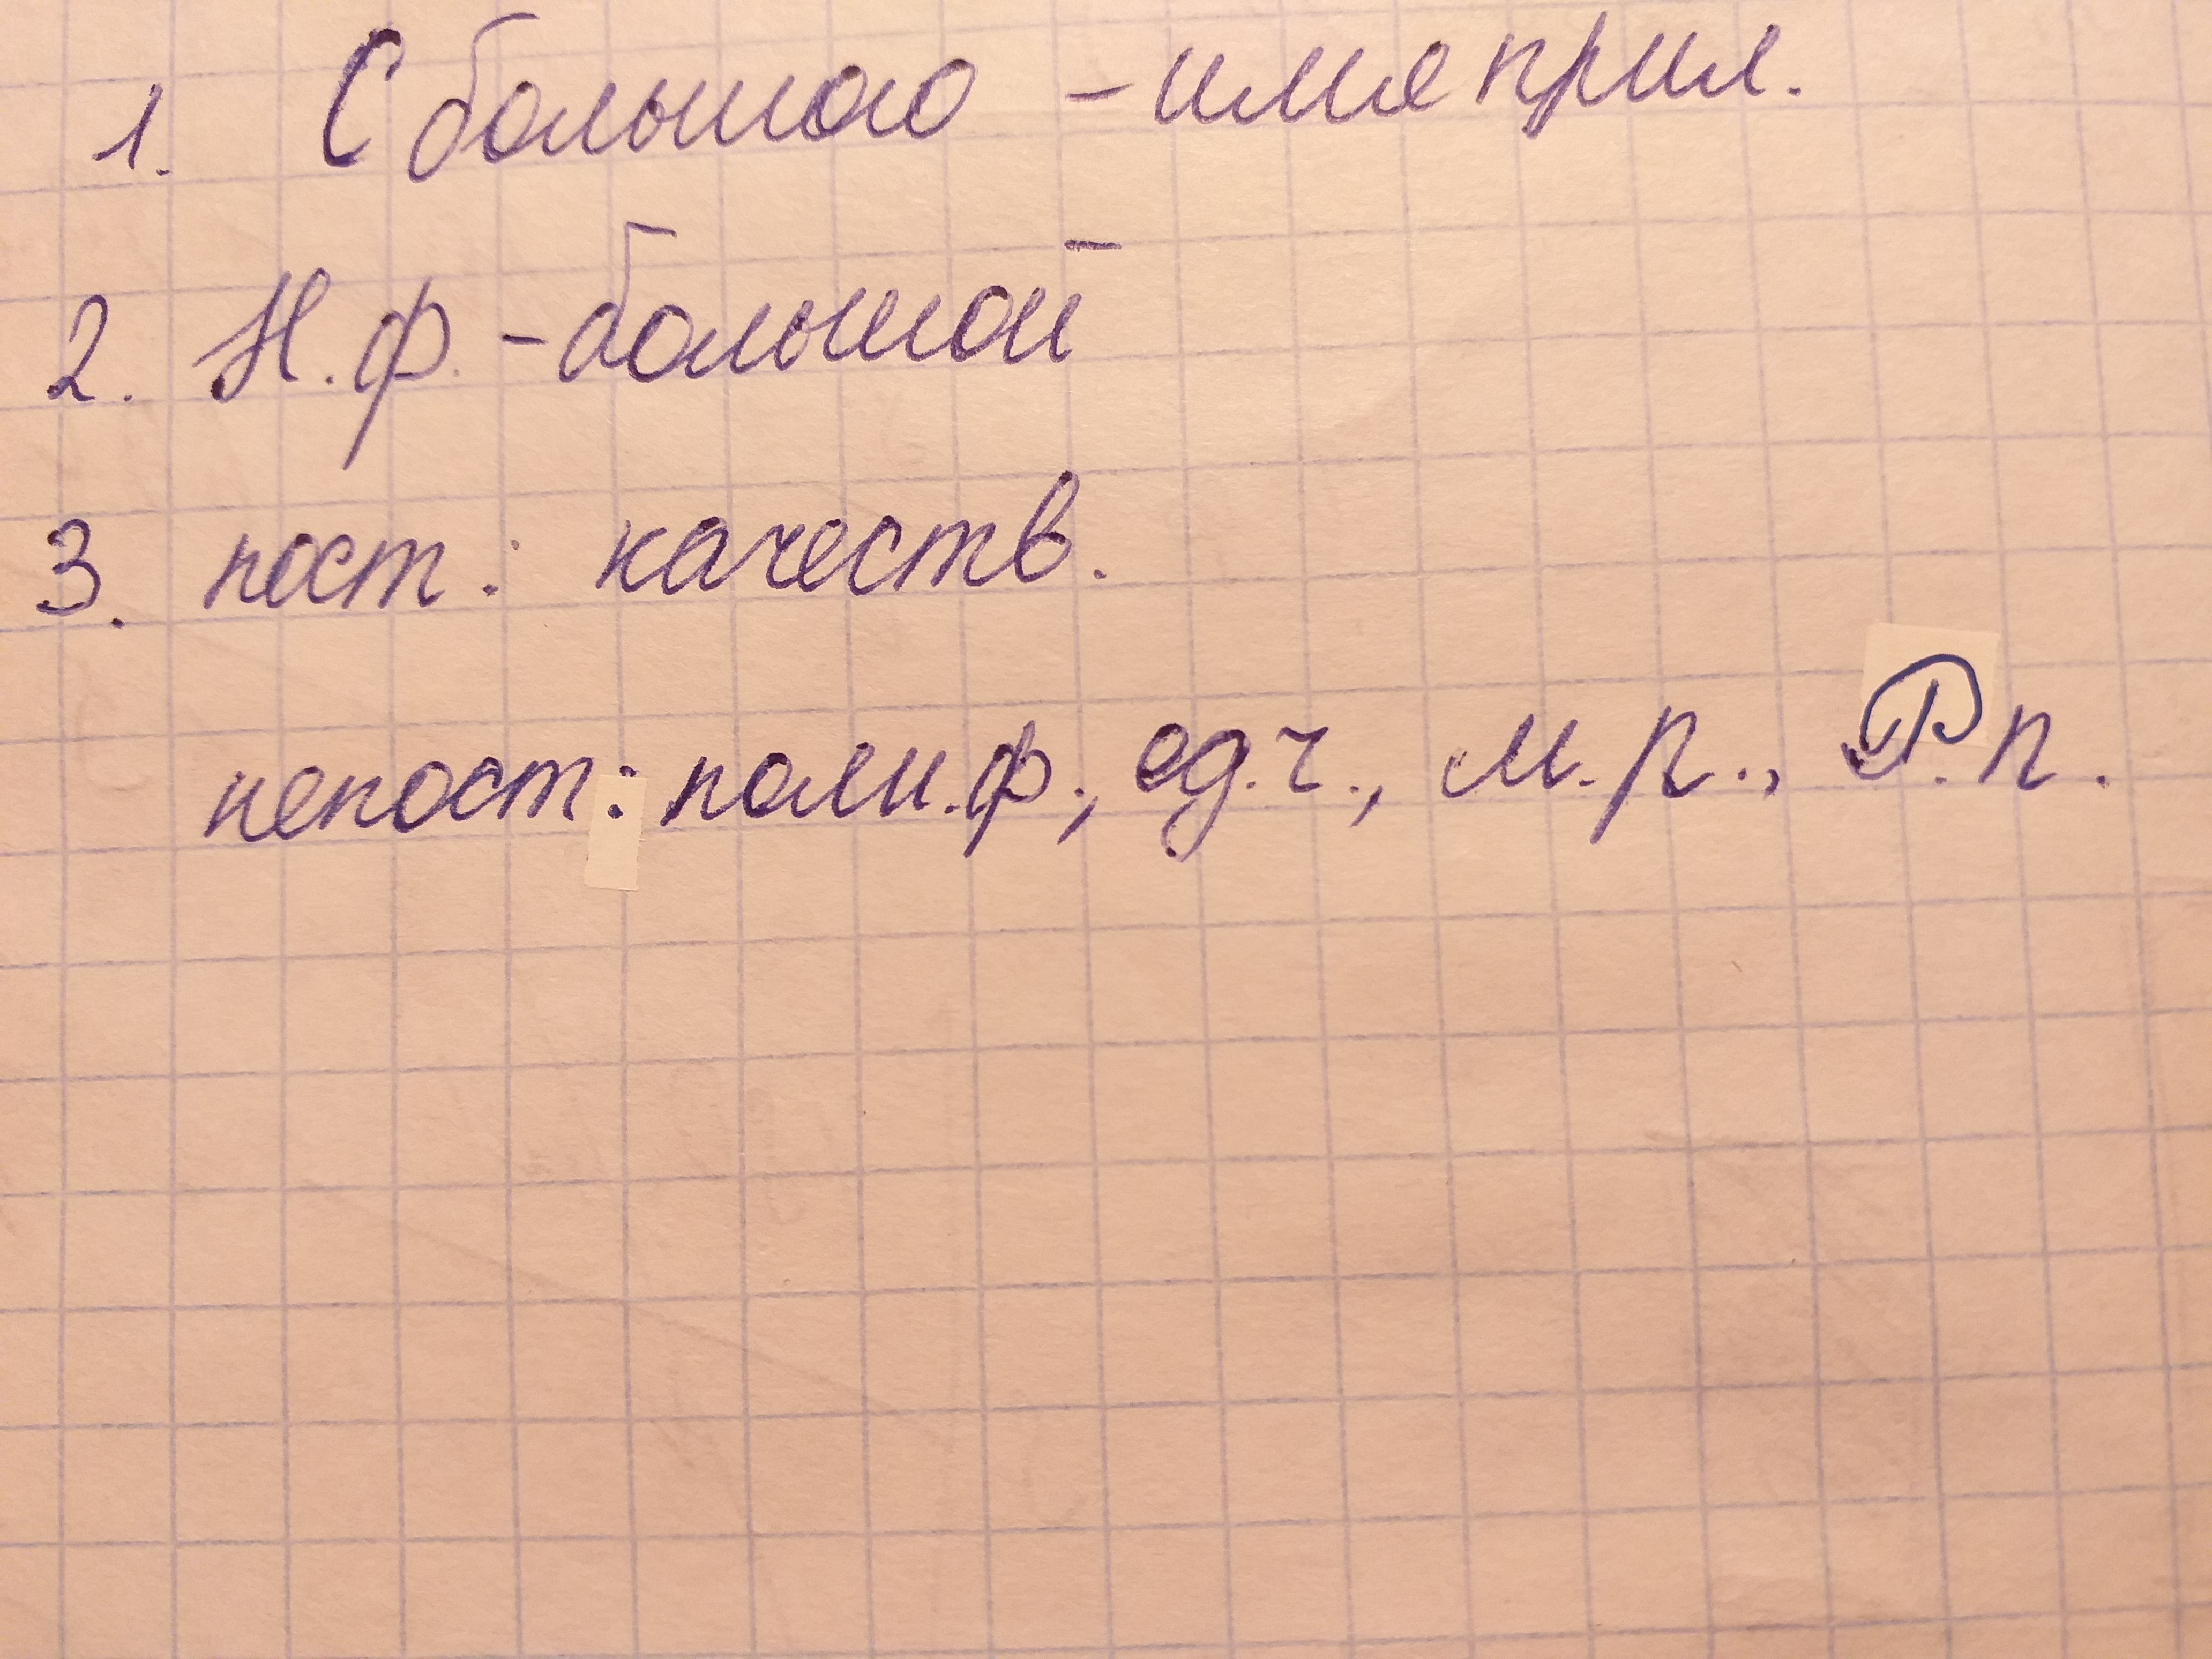 1. С большого - имя прил.
2. Н.ф. - большой
3. пост: качеств.
непост: полн.ф., ед.ч., м.р., Р.п.